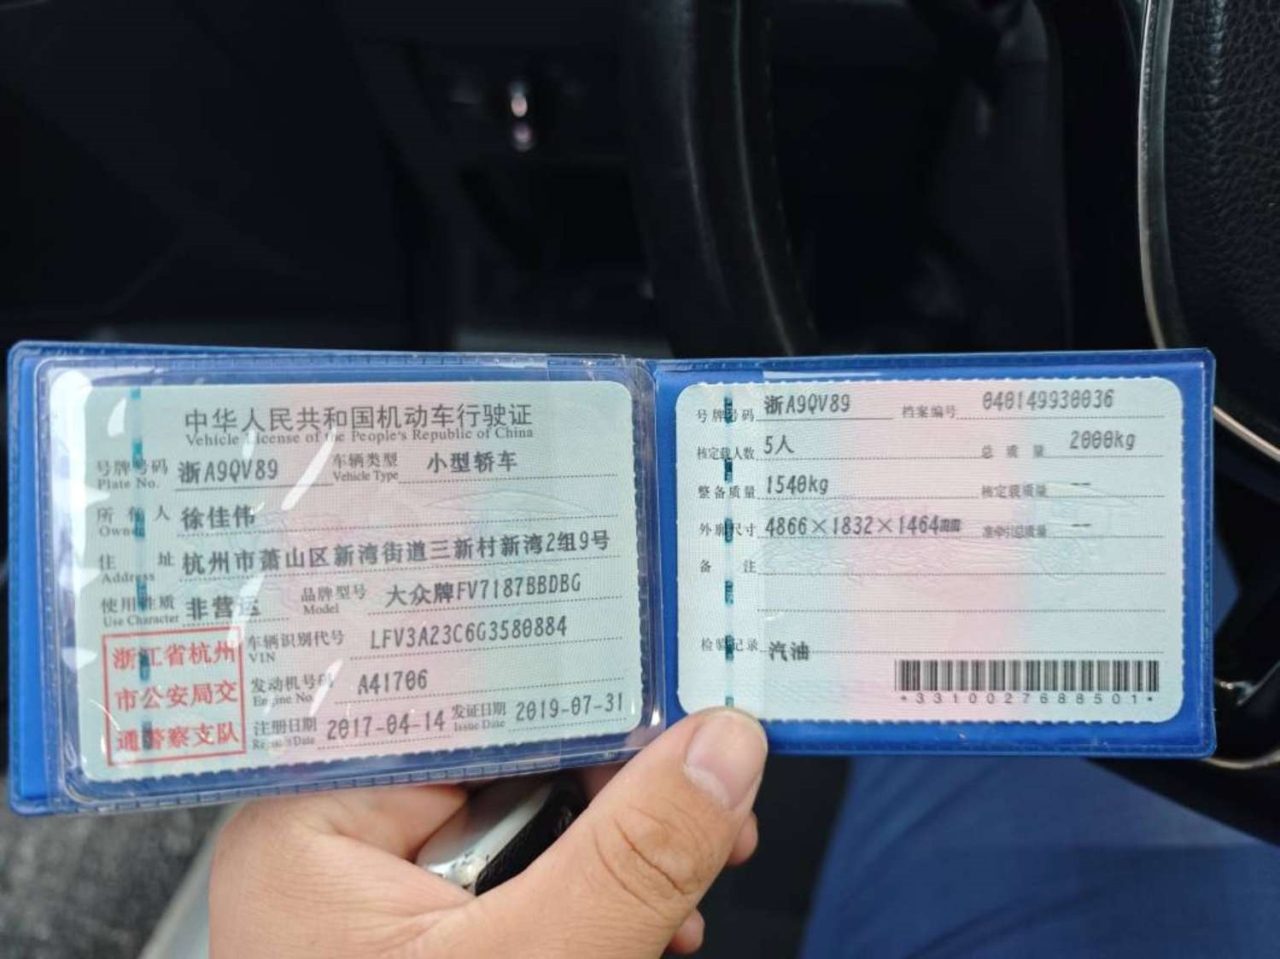 中华人民共和国机动车行驶证
Vehicle License of the People's Republic of China
号牌号码 浙A9QV89 车辆类型 小型轿车
Plate No. Vehicle Type
所有人 徐佳伟
Owner
住址 杭州市萧山区新湾街道三新村新湾2组9号
Address
使用性质 非营运 品牌型号 大众牌FV7187BBDBG
Use Character Model
浙江省杭州
市公安局交
通警察支队
车辆识别代号 LFV3A23C6G3580884
VIN
发动机号码 A41706
Engine No.
注册日期 2017-04-14 发证日期 2019-07-31
Register Date Issue Date
号牌号码 浙A9QV89 档案编号 040149930036
核定载人数 5人 总质量 2000kg
整备质量 1540kg 核定载质量 --
外廓尺寸 4866×1832×1464mm 准牵引总质量 --
备注
检验记录 汽油
*3310027688501*